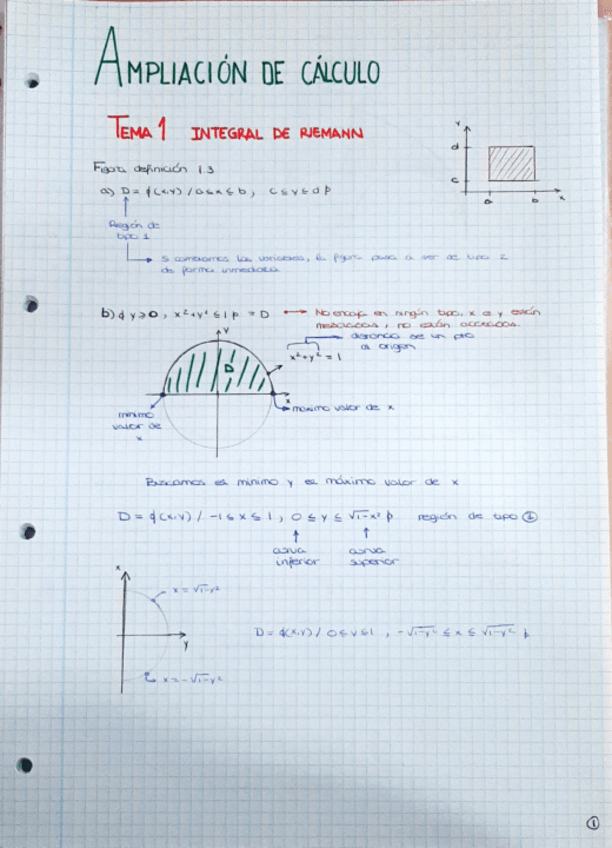 AMPLIACIÓN DE CÁLCULO
TEMA 1 INTEGRAL DE RIEMANN
Figura definición 1.3
a) D = {(x,y) / a ≤ x ≤ b, c ≤ y ≤ d}
y
d
c
a
b
x
Región de
tipo 1
Si cambiamos las variables, la figura pasa a ser de tipo 2
de forma inmediata
b) {y ≥ 0, x² + y² ≤ 1} = D
No encaja en ningún tipo, x e y están
mezcladas, no están acotadas.
distancia de un pto
al origen
x² + y² = 1
y
D
x
mínimo
valor de
x
máximo valor de x
Buscamos el mínimo y el máximo valor de x
D = {(x,y) / -1 ≤ x ≤ 1, 0 ≤ y ≤ √1-x²} región de tipo ①
curva
inferior
curva
superior
x
x = √1-y²
y
D = {(x,y) / 0 ≤ y ≤ 1, -√1-y² ≤ x ≤ √1-y²}
x = -√1-y²
①